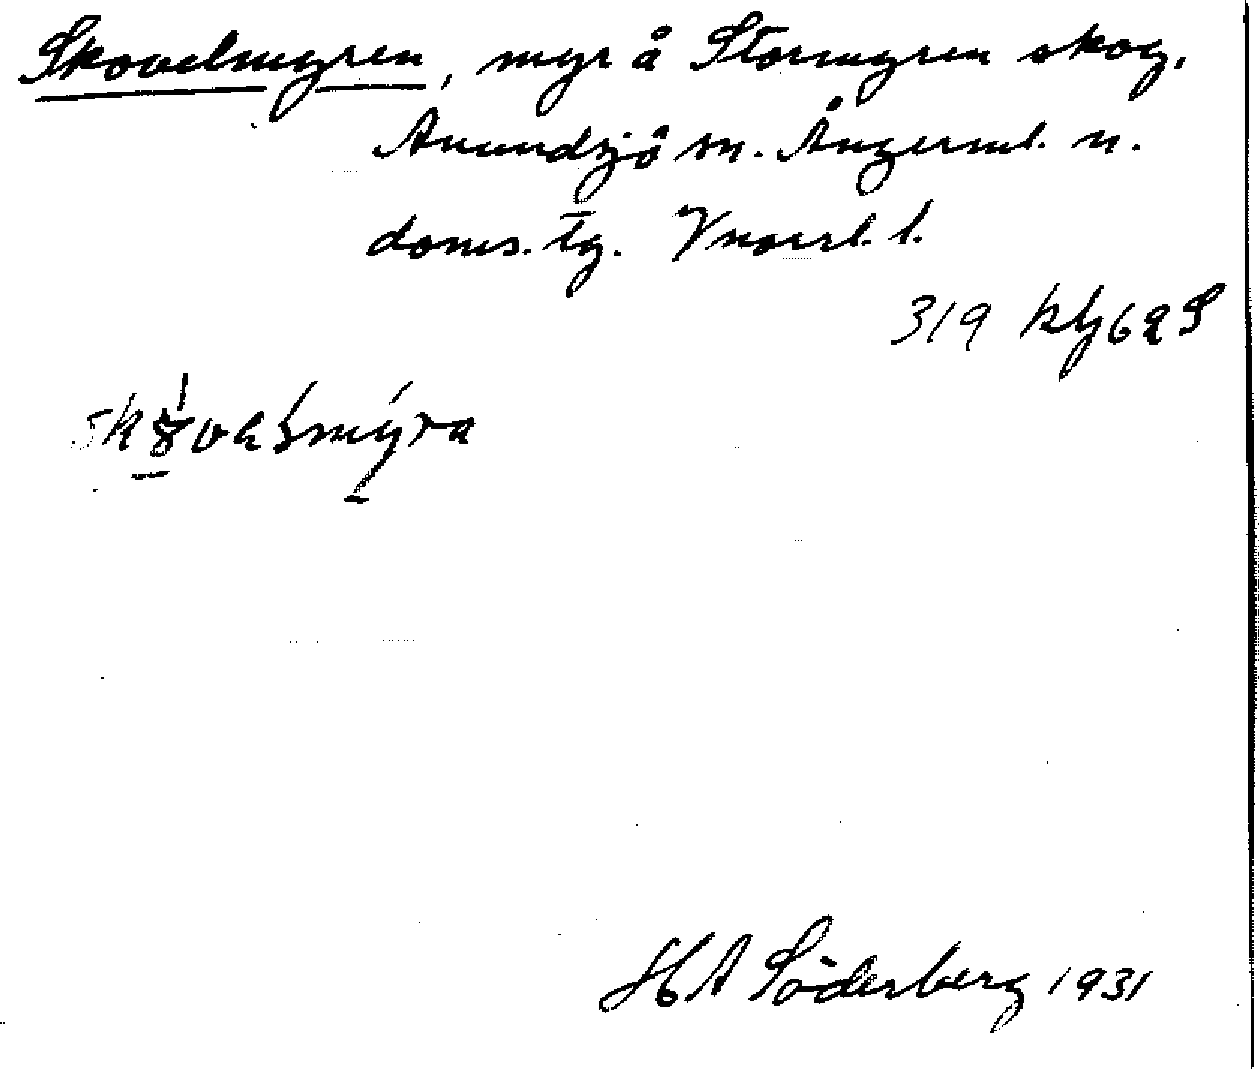 Skovelmyren, myr å Stormyren skog,
Anundsjö sn. Ångerml. n.
doms. tg. Vnorrl. l.
319 Hj 62 S
H A Söderberg 1931